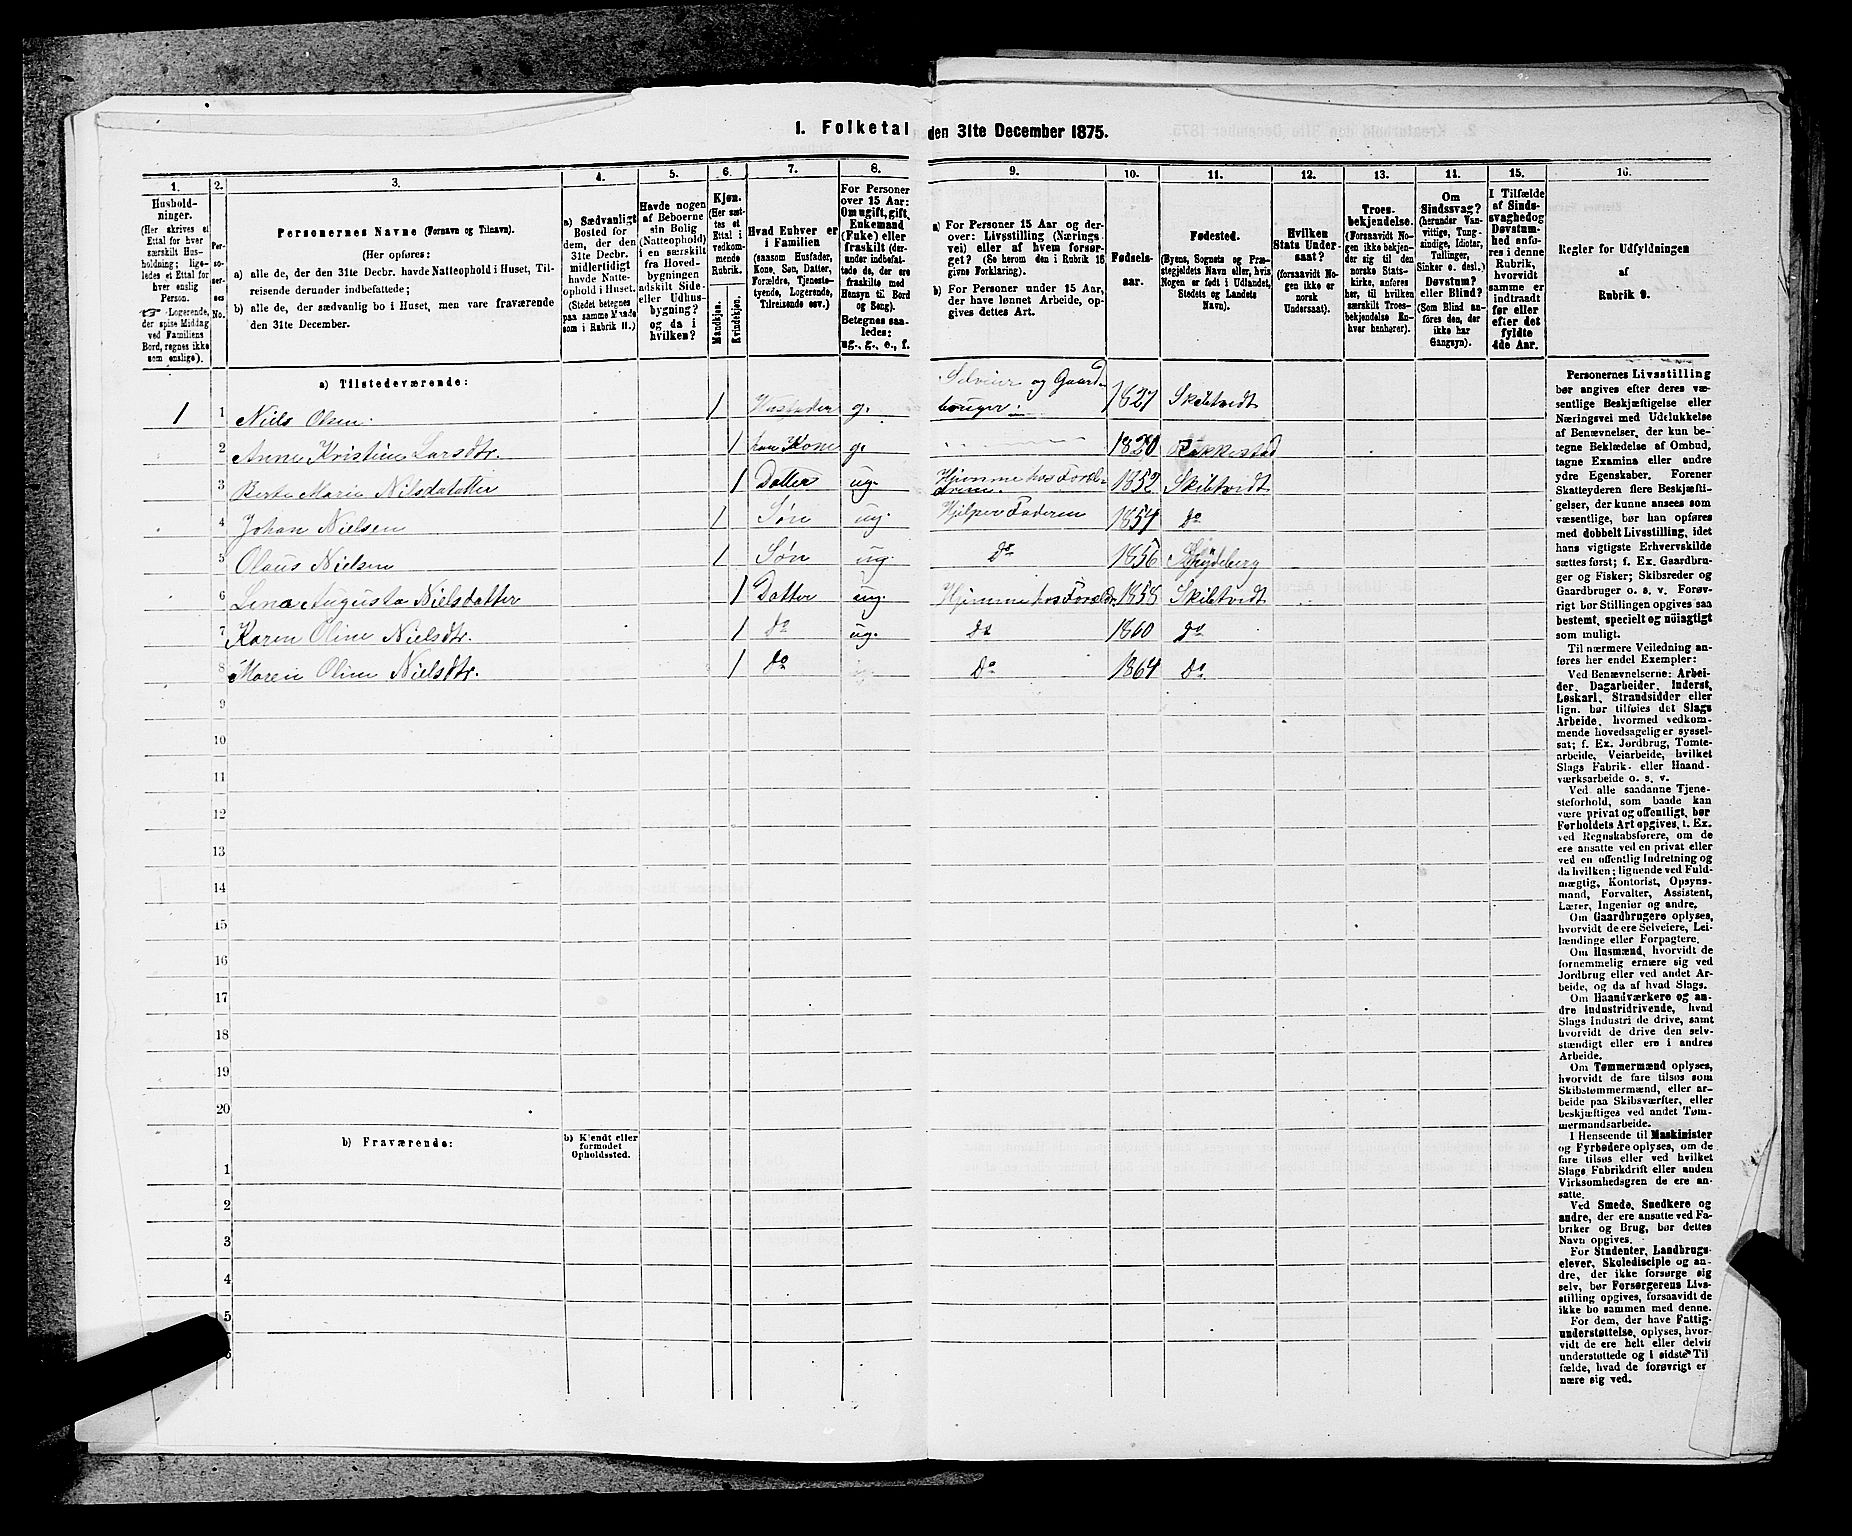 1. Folketal den 31te December 1875.
1. 2. 3. 4. 5. 6. 7. 8. 9. 10. 11. 12. 13. 14. 15. 16.
Hushold-
ninger.
(Her skrives et
Ettal for hver
særskilt Hus-
holdning; lige-
ledes et Ettal for
hver enslig
Person.
☞ Logerende,
der spise Middag
ved Familiens
Bord, regnes ikke
som enslige).
Per-
so-
ner-
nes
No.
Personernes Navne (Fornavn og Tilnavn).
(Her opføres:
a) alle de, der den 31te Decbr. havde Natteophold i Huset, Til-
reisende derunder indbefattede;
b) alle de, der sædvanlig bo i Huset, men vare fraværende
den 31te December.
a) Sædvanligt
Bosted for
dem, der den
31te Decbr.
midlertidigt
havde Natte-
ophold i Huset.
(Stedet betegnes
paa samme Maade
som i Rubrik 11.)
Havde nogen
af Beboerne
sin Bolig
(Natteophold)
i en særskilt
fra Hoved-
bygningen
adskilt Side-
eller Udhus-
bygning?
og da i
hvilken?
Kjøn.
(Her sæt-
tes et
Ettal i
vedkom-
mende
Rubrik.
Mandkjøn.
Kvindekjøn.
Hvad Enhver er
i Familien
(saasom Husfader,
Kone, Søn, Datter,
Forældre, Tjeneste-
tyende, Logerende,
Tilreisende osv.)
For Personer
over 15 Aar:
Om ugift, gift,
Enkemand
(Enke) eller
fraskilt (der-
under indbefat-
tede de, der ere
fraskilte med
Hensyn til Bord
og Seng).
Betegnes saa-
ledes:
ug., g., e., f.
a) For Personer 15 Aar og der-
over: Livsstilling (Nærings-
vei) eller af hvem forsør-
get? (Se herom den i Rubrik 16
givne Forklaring).
b) For Personer under 15 Aar,
der have lønnet Arbeide, op-
gives dettes Art.
Fødsels-
aar.
Fødested.
(Byens, Sognets og Præ-
stegjeldets Navn eller, hvis
Nogen er født i Udlandet,
Stedets og Landets
Navn).
Hvilken
Stats Under-
saat?
(forsaavidt No-
gen ikke er
norsk
Undersaat).
Troes-
bekjendelse.
(Forsaavidt No-
gen ikke bekjen-
der sig til den
norske Stats-
kirke, anføres
her, til hvilken
særskilt Troes-
bekjendelse En-
hver henhører).
Om
Sindssvag?
(herunder Van-
vittige, Tung-
sindige, Idioter,
Tullinger,
Sinker o. desl.)
Døvstum?
eller Blind?
(Som Blind an-
føres den, der
ikke har
Gangsyn).
I Tilfælde
af Sinds-
svaghed og
Døvstum-
hed anfø-
res i denne
Rubrik,
hvorvidt
samme er
indtraadt
før eller
efter det
fyldte
4de Aar.
Regler for Udfyldningen
af
Rubrik 9.
a) Tilstedeværende:
1 1 Niels Olsen. 1 Husfader g. Selveier og Gaard-
bruger. 1827 Skibtvedt
2 Anne Kristine Larsdtr. 1 hans Kone g. 1820 Rakkestad
3 Berte Marie Nilsdatter 1 Datter ug. Hjemme hos Foræl-
drene. 1852 Skibtvedt
4 Johan Nielsen 1 Søn ug. Hjelper Faderen 1854 Do
5 Olaus Nielsen 1 Søn ug. Do 1856 Spydeberg
6 Lina Augusta Nielsdatter 1 Datter ug. Hjemme hos Forældr. 1858 Skibtvedt
7 Karen Oline Nielsdtr. 1 Do ug. Do 1860 Do
8 Maren Oline Nielsdtr. 1 Do Do 1864 Do
9
10
11
12
13
14
15
16
17
18
19
20
b) Fraværende:
b) Kjendt eller
formodet
Opholdssted.
1
2
3
4
5
Personernes Livsstilling
bør angives efter deres væ-
sentlige Beskjæftigelse eller
Næringsvei med Udelukkelse
af Benævnelser, der kun be-
tegne Beklædelse af Ombud,
tagne Examina eller andre
ydre Egenskaber. Forener
Skatteyderen flere Beskjæfti-
gelser, der kunne ansees som
væsentlige, bør han opføres
med dobbelt Livsstilling, idet
hans vigtigste Erhvervskilde
sættes først; f. Ex. Gaardbru-
ger og Fisker; Skibsreder og
Gaardbruger o. s. v. Forøv-
rigt bør Stillingen opgives saa
bestemt, specielt og nøiagtigt
som muligt.
Til nærmere Veiledning an-
føres her endel Exempler:
Ved Benævnelserne: Arbei-
der, Dagarbeider, Inderst,
Løskarl, Strandsidder eller
lign. bør tilføies det Slags
Arbeide, hvormed vedkom-
mende hovedsagelig er syssel-
sat; f. Ex. Jordbrug, Tomte-
arbeide, Veiarbeide, hvilket
Slags Fabrik- eller Haand-
værksarbeide o. s. v.
Ved alle saadanne Tjene-
steforhold, som baade kan
være privat og offentligt, bør
Forholdets Art opgives, t. Ex.
ved Regnskabsførere, om de
ere ansatte ved en privat eller
ved en offentlig Indretning og
da hvilken; lignende ved Fuld-
mægtig, Kontorist, Opsyns-
mand, Forvalter, Assistent,
Lærer, Ingeniør og andre.
Om Gaardbrugere oplyses,
hvorvidt de ere Selveiere, Lei-
lændinge eller Forpagtere.
Om Husmænd, hvorvidt de
fornemmelig ernære sig ved
Jordbrug eller ved andet Ar-
beide, og da af hvad Slags.
Om Haandværkere og an-
dre Industridrivende, hvad
Slags Industri de drive, samt
hvorvidt de drive den selv-
stændigt eller ere i andres
Arbeide.
Om Tømmermænd oplyses,
hvorvidt de fare tilsøs som
Skibstømmermænd, eller ar-
beide paa Skibsværfter, eller
beskjæftiges ved andet Tøm-
mermandsarbeide.
I Henseende til Maskinister
og Fyrbødere oplyses, om de
fare tilsøs eller ved hvilket
Slags Fabrikdrift eller anden
Virksomhedsgren de ere an-
satte.
Ved Smede, Snedkere og
andre, der ere ansatte ved Fa-
briker og Brug, bør dettes
Navn opgives.
For Studenter, Landbrugs-
elever, Skoledisciple og an-
dre, der ikke forsørge sig
selv, bør Forsørgerens Livs-
stilling opgives, forsaavidt de
ikke bo sammen med denne.
For dem, der have Fattig-
understøttelse, oplyses, hvor-
vidt de ere helt eller delvis
understøttede og i sidste Til-
fælde, hvad de forøvrigt er-
nære sig ved.